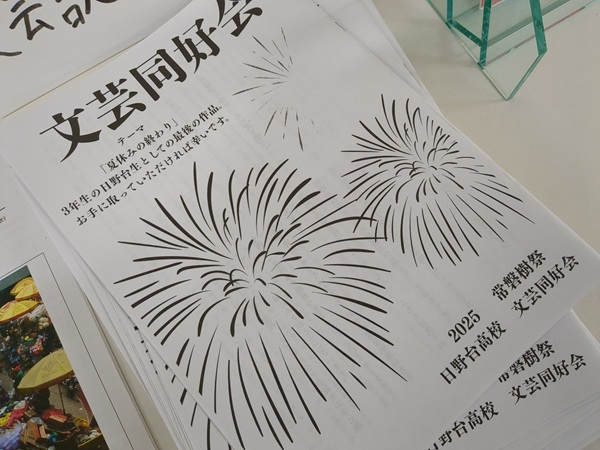 文芸同好会
テーマ
「夏休みの終わり」
3年生の日野台生としての最後の作品。
お手に取っていただければ幸いです。
2025 常磐樹祭
日野台高校 文芸同好会
常磐樹祭
日野台高校 文芸同好会